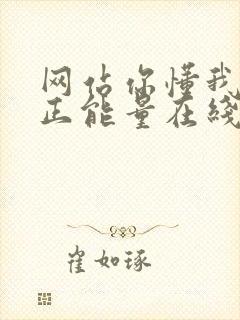 网佔你懂我
正能量在綫
崔如琢